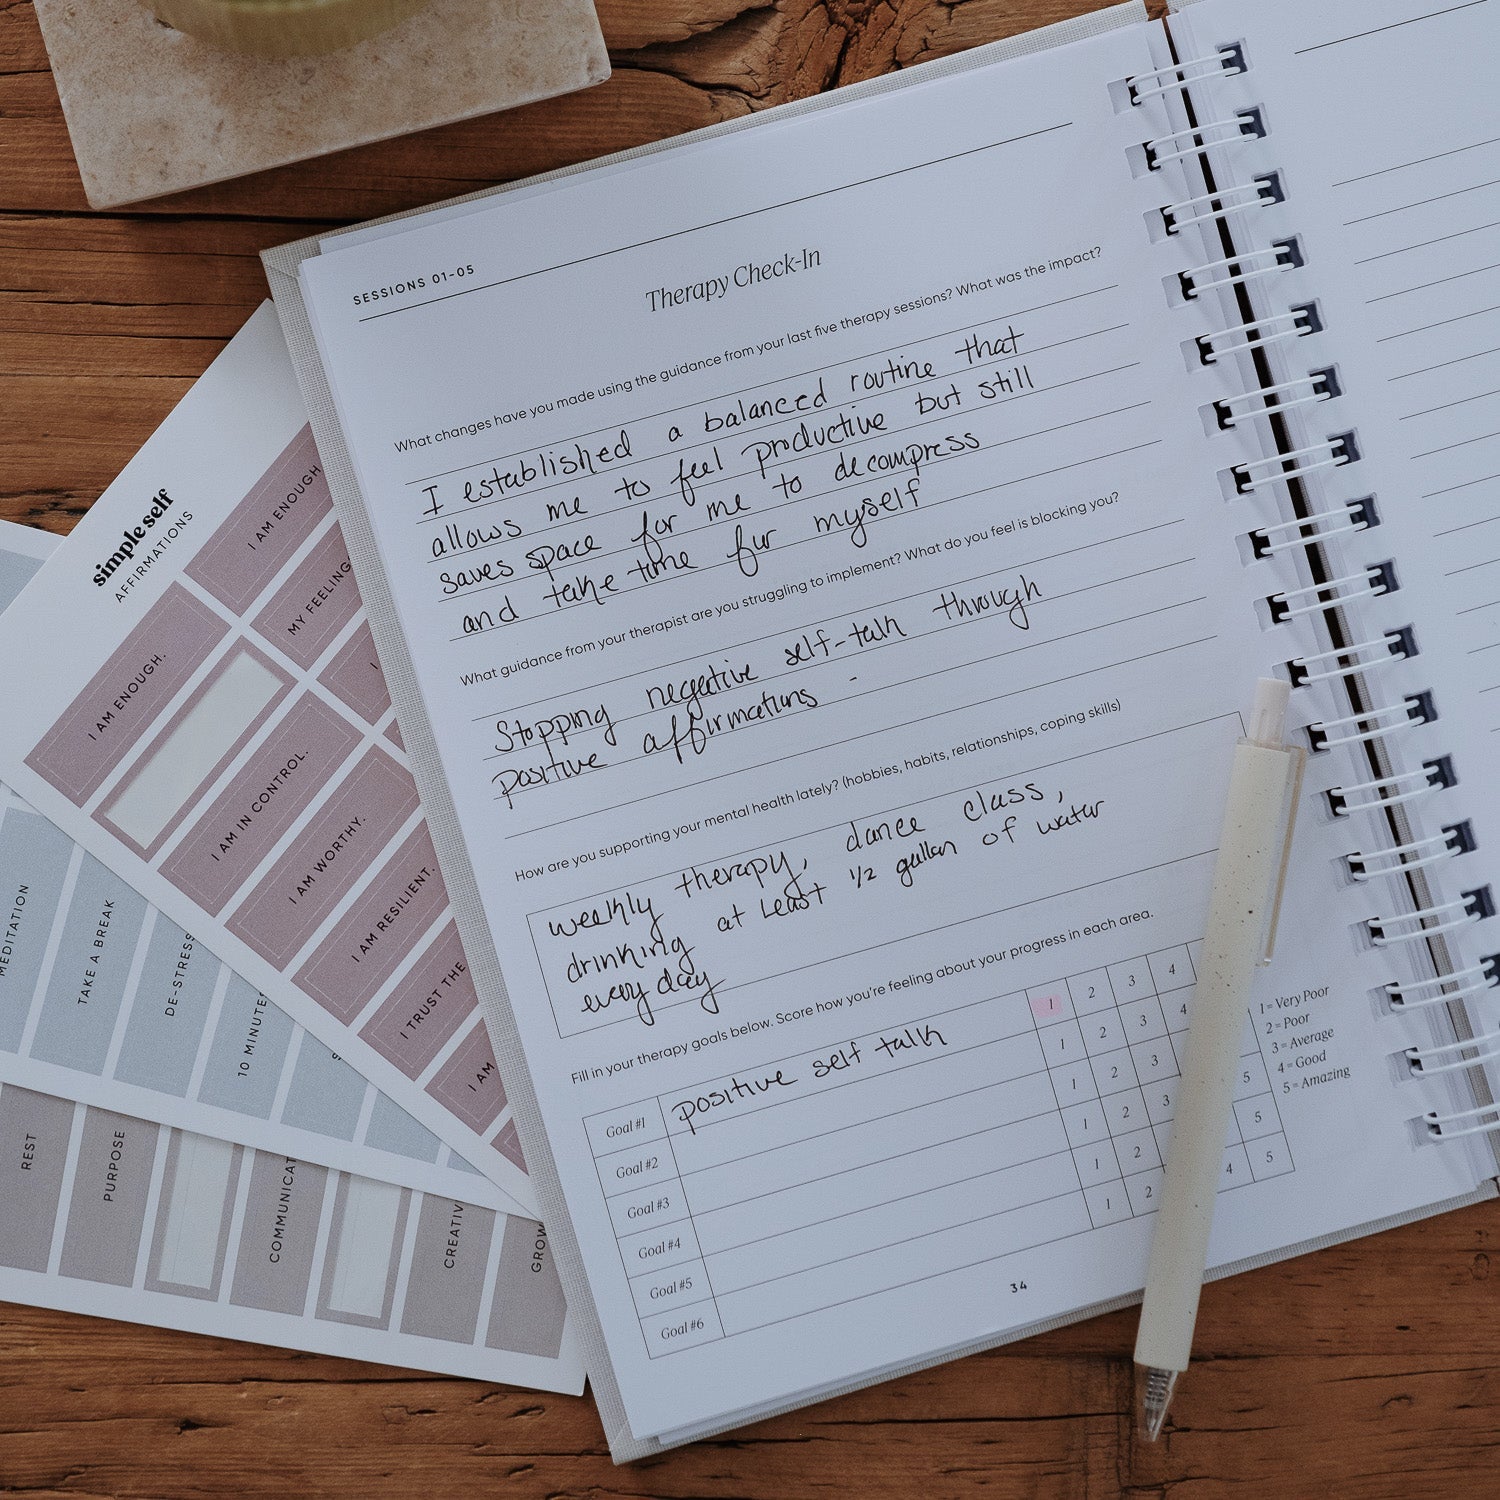 SESSIONS 01-05
Therapy Check-In
What changes have you made using the guidance from your last five therapy sessions? What was the impact?
I established a balanced routine that
allows me to feel productive but still
saves space for me to decompress
and take time for myself
What guidance from your therapist are you struggling to implement? What do you feel is blocking you?
Stopping negative self-talk through
positive affirmations -
How are you supporting your mental health lately? (hobbies, habits, relationships, coping skills)
weekly therapy, dance class,
drinking at least 1/2 gallon of water
every day
Fill in your therapy goals below. Score how you're feeling about your progress in each area.
Goal #1 positive self talk 1 2 3 4
Goal #2 1 2 3 4
Goal #3 1 2 3
Goal #4 1 2 3 5
Goal #5 1 2 5
Goal #6 1 2 4 5
1 = Very Poor
2 = Poor
3 = Average
4 = Good
5 = Amazing
34
simple self
AFFIRMATIONS
I AM ENOUGH
MY FEELING
I
I AM ENOUGH.
I AM IN CONTROL.
I AM WORTHY.
I AM RESILIENT.
I TRUST THE
I AM
MEDITATION
TAKE A BREAK
DE-STRESS
10 MINUTE
REST
PURPOSE
COMMUNICAT
CREATIV
GROW